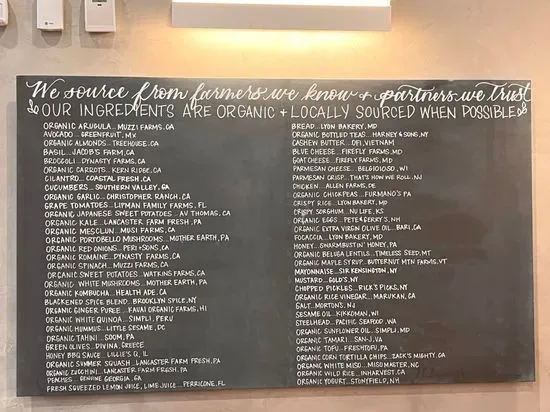 We source from farmers we know + partners we trust
OUR INGREDIENTS ARE ORGANIC + LOCALLY SOURCED WHEN POSSIBLE
ORGANIC ARUGULA... MUZZI FARMS, CA
AVOCADO... GREENFRUIT, MX
ORGANIC ALMONDS... TREEHOUSE, CA
BASIL... JACOB'S FARM, CA
BROCCOLI... DYNASTY FARMS, CA
ORGANIC CARROTS... KERN RIDGE, CA
CILANTRO... COASTAL FRESH, CA
CUCUMBERS... SOUTHERN VALLEY, GA
ORGANIC GARLIC... CHRISTOPHER RANCH, CA
GRAPE TOMATOES... LIPMAN FAMILY FARMS, FL
ORGANIC JAPANESE SWEET POTATOES... AV THOMAS, CA
ORGANIC KALE... LANCASTER FARM FRESH, PA
ORGANIC MESCLUN... MUSI FARMS, CA
ORGANIC PORTOBELLO MUSHROOMS... MOTHER EARTH, PA
ORGANIC RED ONIONS... PERI + SONS, CA
ORGANIC ROMAINE... DYNASTY FARMS, CA
ORGANIC SPINACH... MUZZI FARMS, CA
ORGANIC SWEET POTATOES... WATKINS FARMS, CA
ORGANIC WHITE MUSHROOMS... MOTHER EARTH, PA
ORGANIC KOMBUCHA... HEALTH ADE, CA
BLACKENED SPICE BLEND... BROOKLYN SPICE, NY
ORGANIC GINGER PUREE... KAUAI ORGANIC FARMS, HI
ORGANIC WHITE QUINOA... SIMPLI, PERU
ORGANIC HUMMUS... LITTLE SESAME, DC
ORGANIC TAHINI... SOOM, PA
GREEN OLIVES... DIVINA, GREECE
HONEY BBQ SAUCE... LILLIE'S Q, IL
ORGANIC SUMMER SQUASH... LANCASTER FARM FRESH, PA
ORGANIC ZUCCHINI... LANCASTER FARM FRESH, PA
PEACHES... GENUINE GEORGIA, GA
FRESH SQUEEZED LEMON JUICE, LIME JUICE... PERRICONE, FL
BREAD... LYON BAKERY, MD
ORGANIC BOTTLED TEAS... HARNEY & SONS, NY
CASHEW BUTTER... OFI, VIETNAM
BLUE CHEESE... FIREFLY FARMS, MD
GOAT CHEESE... FIREFLY FARMS, MD
PARMESAN CHEESE... BELGIOIOSO, WI
PARMESAN CRISP... THAT'S HOW WE ROLL, NJ
CHICKEN... ALLEN FARMS, DE
ORGANIC CHICKPEAS... FURMANO'S PA
CRISPY RICE... LYON BAKERY, MD
CRISPY SORGHUM... NU LIFE, KS
ORGANIC EGGS... PETE & GERRY'S, NH
ORGANIC EXTRA VIRGIN OLIVE OIL... BARI, CA
FOCACCIA... LYON BAKERY, MD
HONEY... SWARMBUSTIN' HONEY, PA
ORGANIC BELUGA LENTILS... TIMELESS SEED, MT
ORGANIC MAPLE SYRUP... BUTTERNUT MTN FARMS, VT
MAYONNAISE... SIR KENSINGTON, NY
MUSTARD... GOLD'S, NY
CHOPPED PICKLES... RICK'S PICKS, NY
ORGANIC RICE VINEGAR... MARUKAN, CA
SALT... MORTON'S, NJ
SESAME OIL... KIKKOMAN, WI
STEELHEAD... PACIFIC SEAFOOD, WA
ORGANIC SUNFLOWER OIL... SIMPLI, MD
ORGANIC TAMARI... SAN-J, VA
ORGANIC TOFU... FRESHTOFU, PA
ORGANIC CORN TORTILLA CHIPS... ZACK'S MIGHTY, CA
ORGANIC WHITE MISO... MISO MASTER, NC
ORGANIC WILD RICE... INHARVEST, CA
ORGANIC YOGURT... STONYFIELD, NH